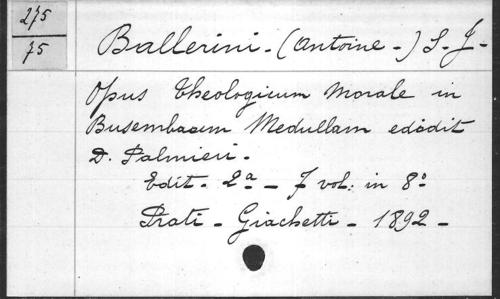 275
75
Ballerini - (Antoine -) S. J -
Opus Theologicum Morale in
Busembaum Medullam edidit
D. Palmieri -
Edit - 2ª - 7 vol. in 8°
Prati - Giachetti - 1892 -